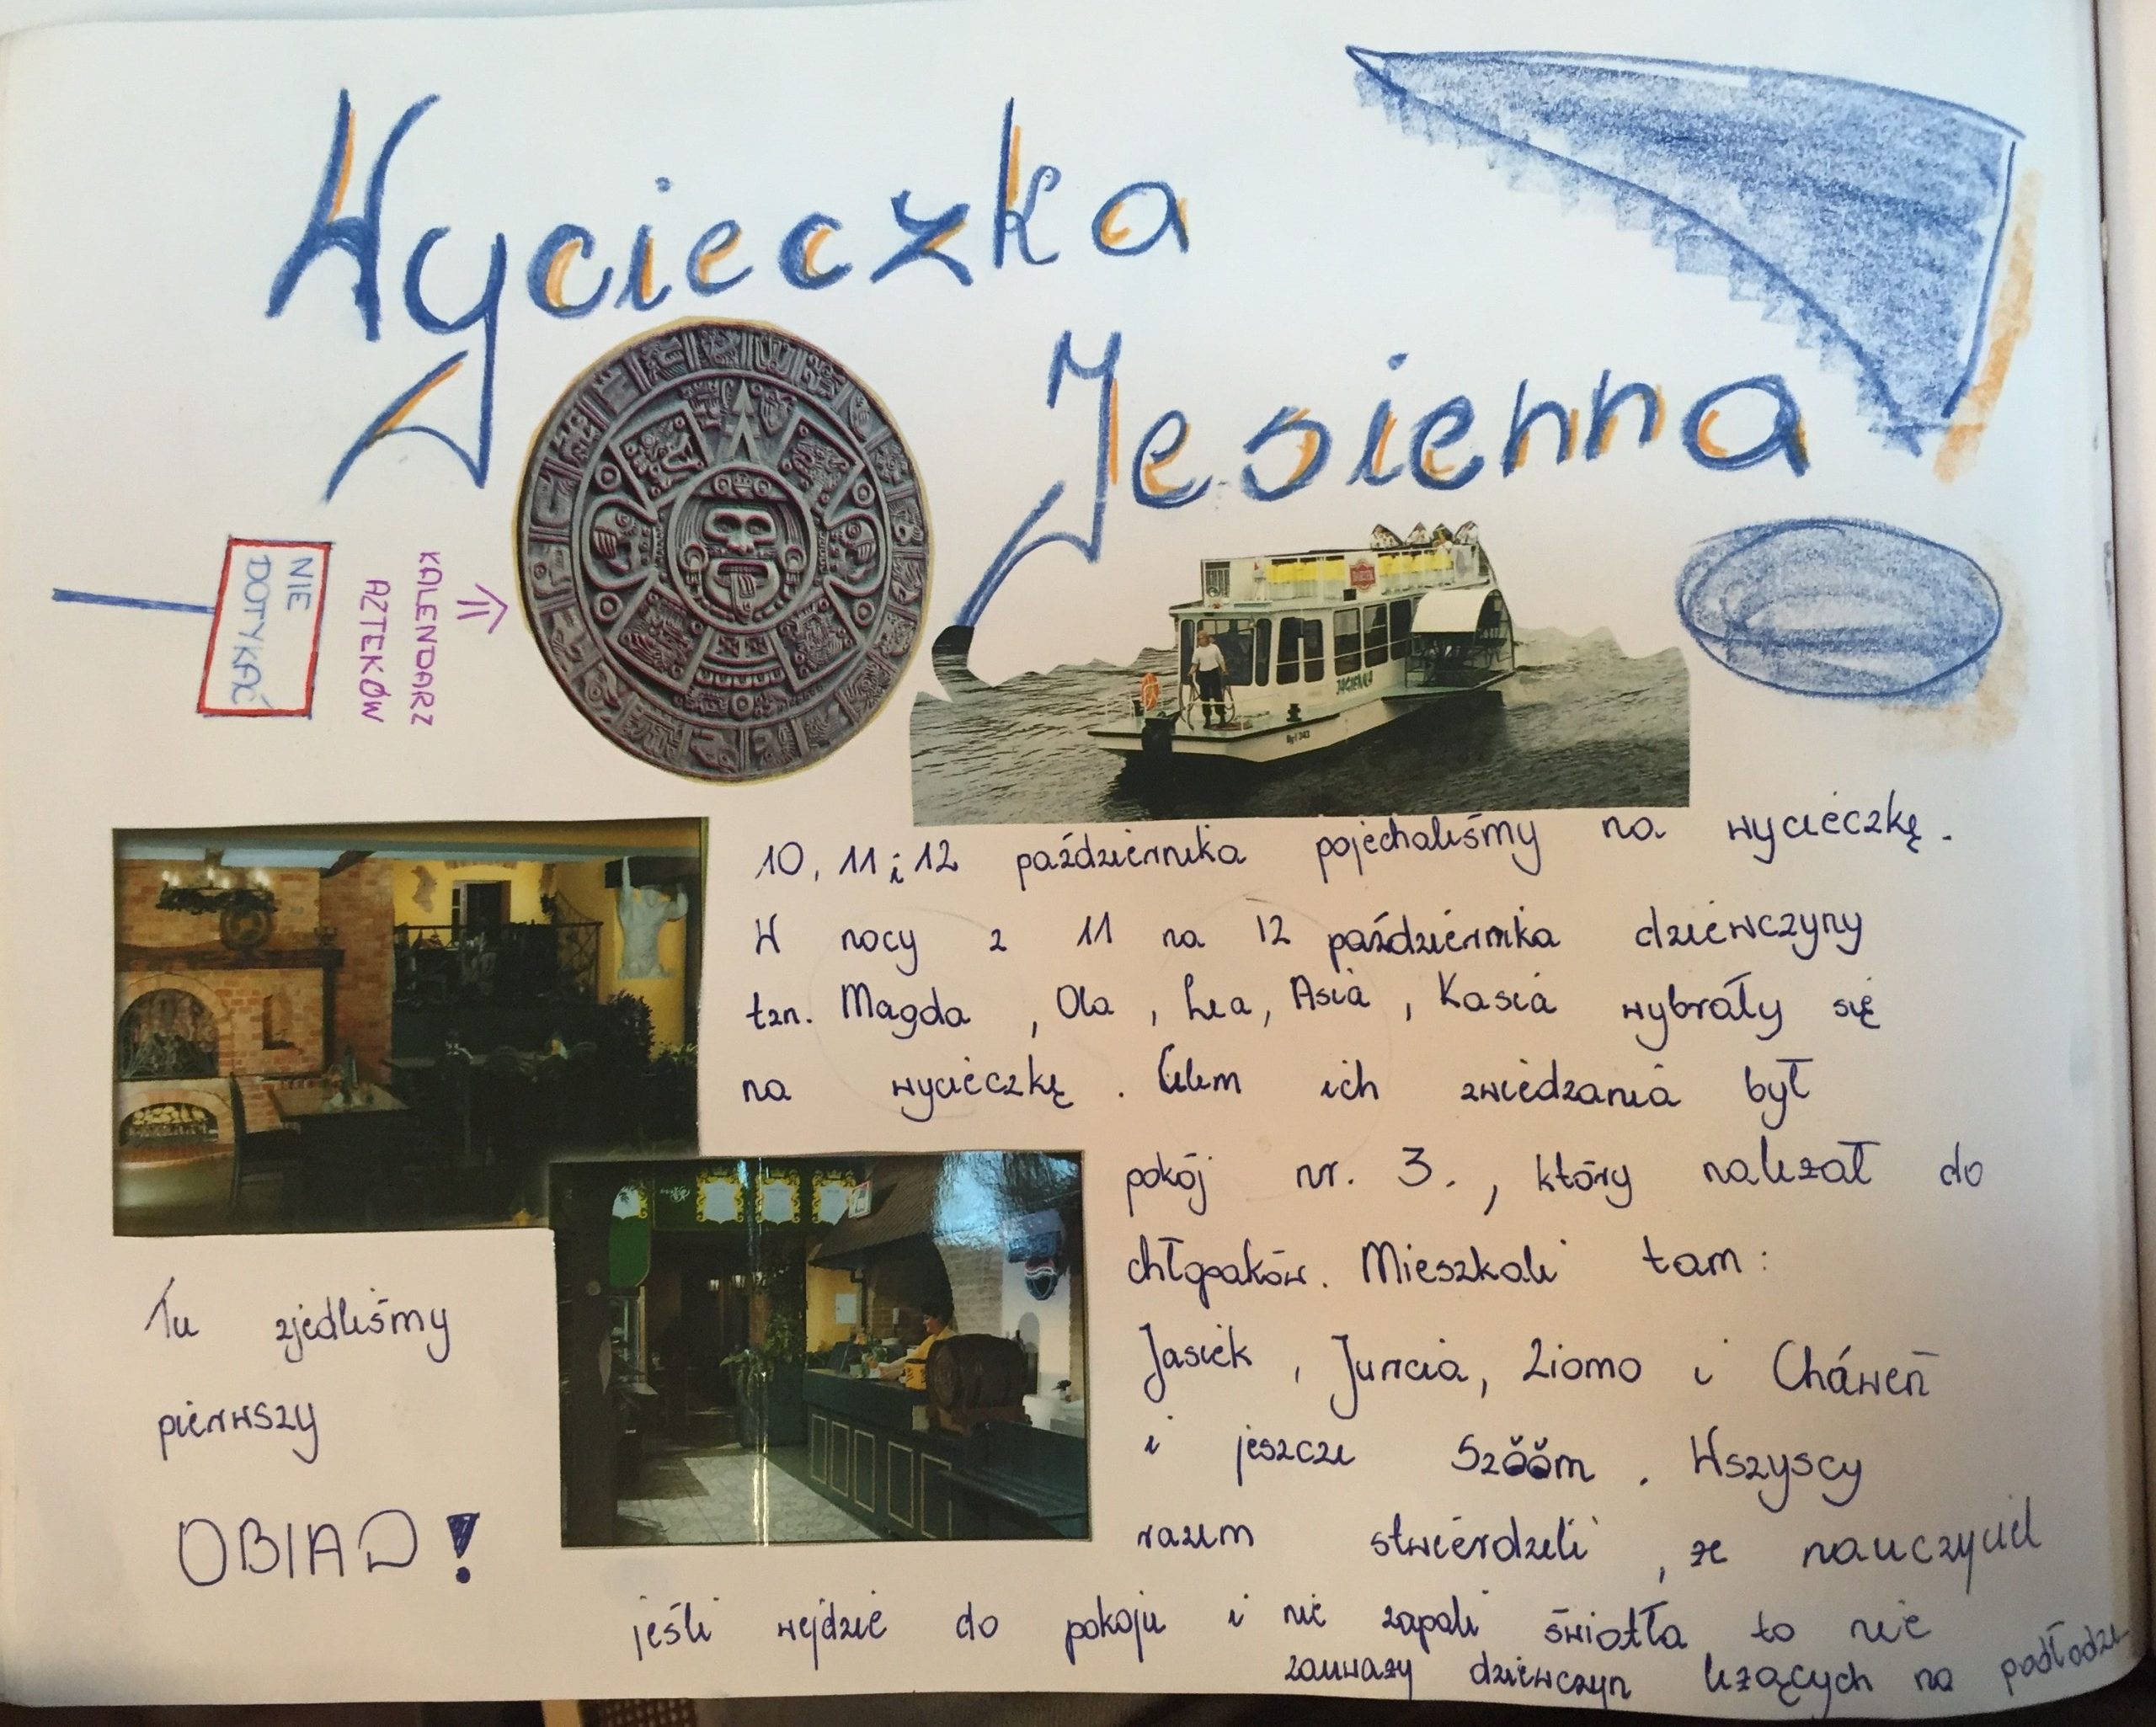 Wycieczka
Jesienna
NIE
DOTYKAĆ
KALENDARZ
AZTEKÓW
JAGIENKA
10, 11 i 12 października pojechaliśmy na wycieczkę.
W nocy z 11 na 12 października dziewczyny
tzn. Magda, Ola, Lea, Asia, Kasia wybrały się
na wycieczkę. Celem ich zwiedzania był
pokój nr. 3., który należał do
chłopaków. Mieszkali tam:
Jasiek, Jurcia, Ziomo i Cháweń
i jeszcze Szŏŏm. Wszyscy
razem stwierdzili, że nauczyciel
jeśli wejdzie do pokoju i nie zapali światła to nie
zauważy dziewczyn leżących na podłodze
Tu zjedliśmy
pierwszy
OBIAD!